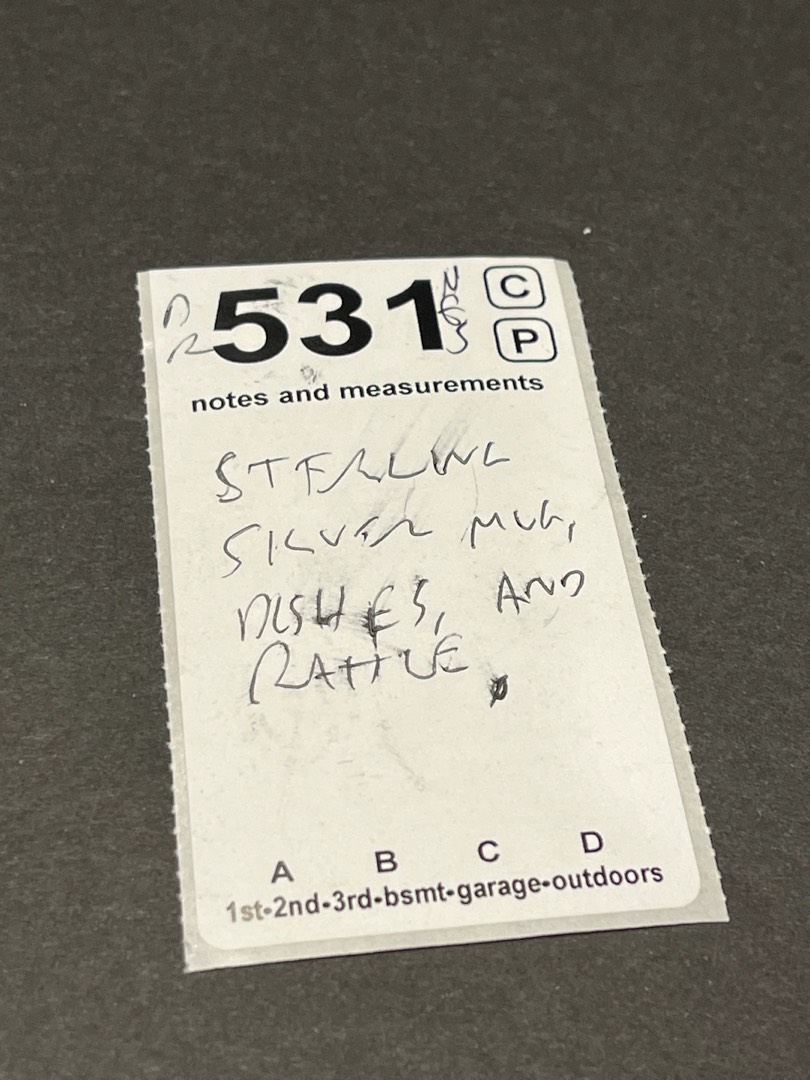 DR 531 C
P
notes and measurements
STERLING
SILVER MUG,
DISHES, AND
RATTLE
A B C D
1st-2nd-3rd-bsmt-garage-outdoors